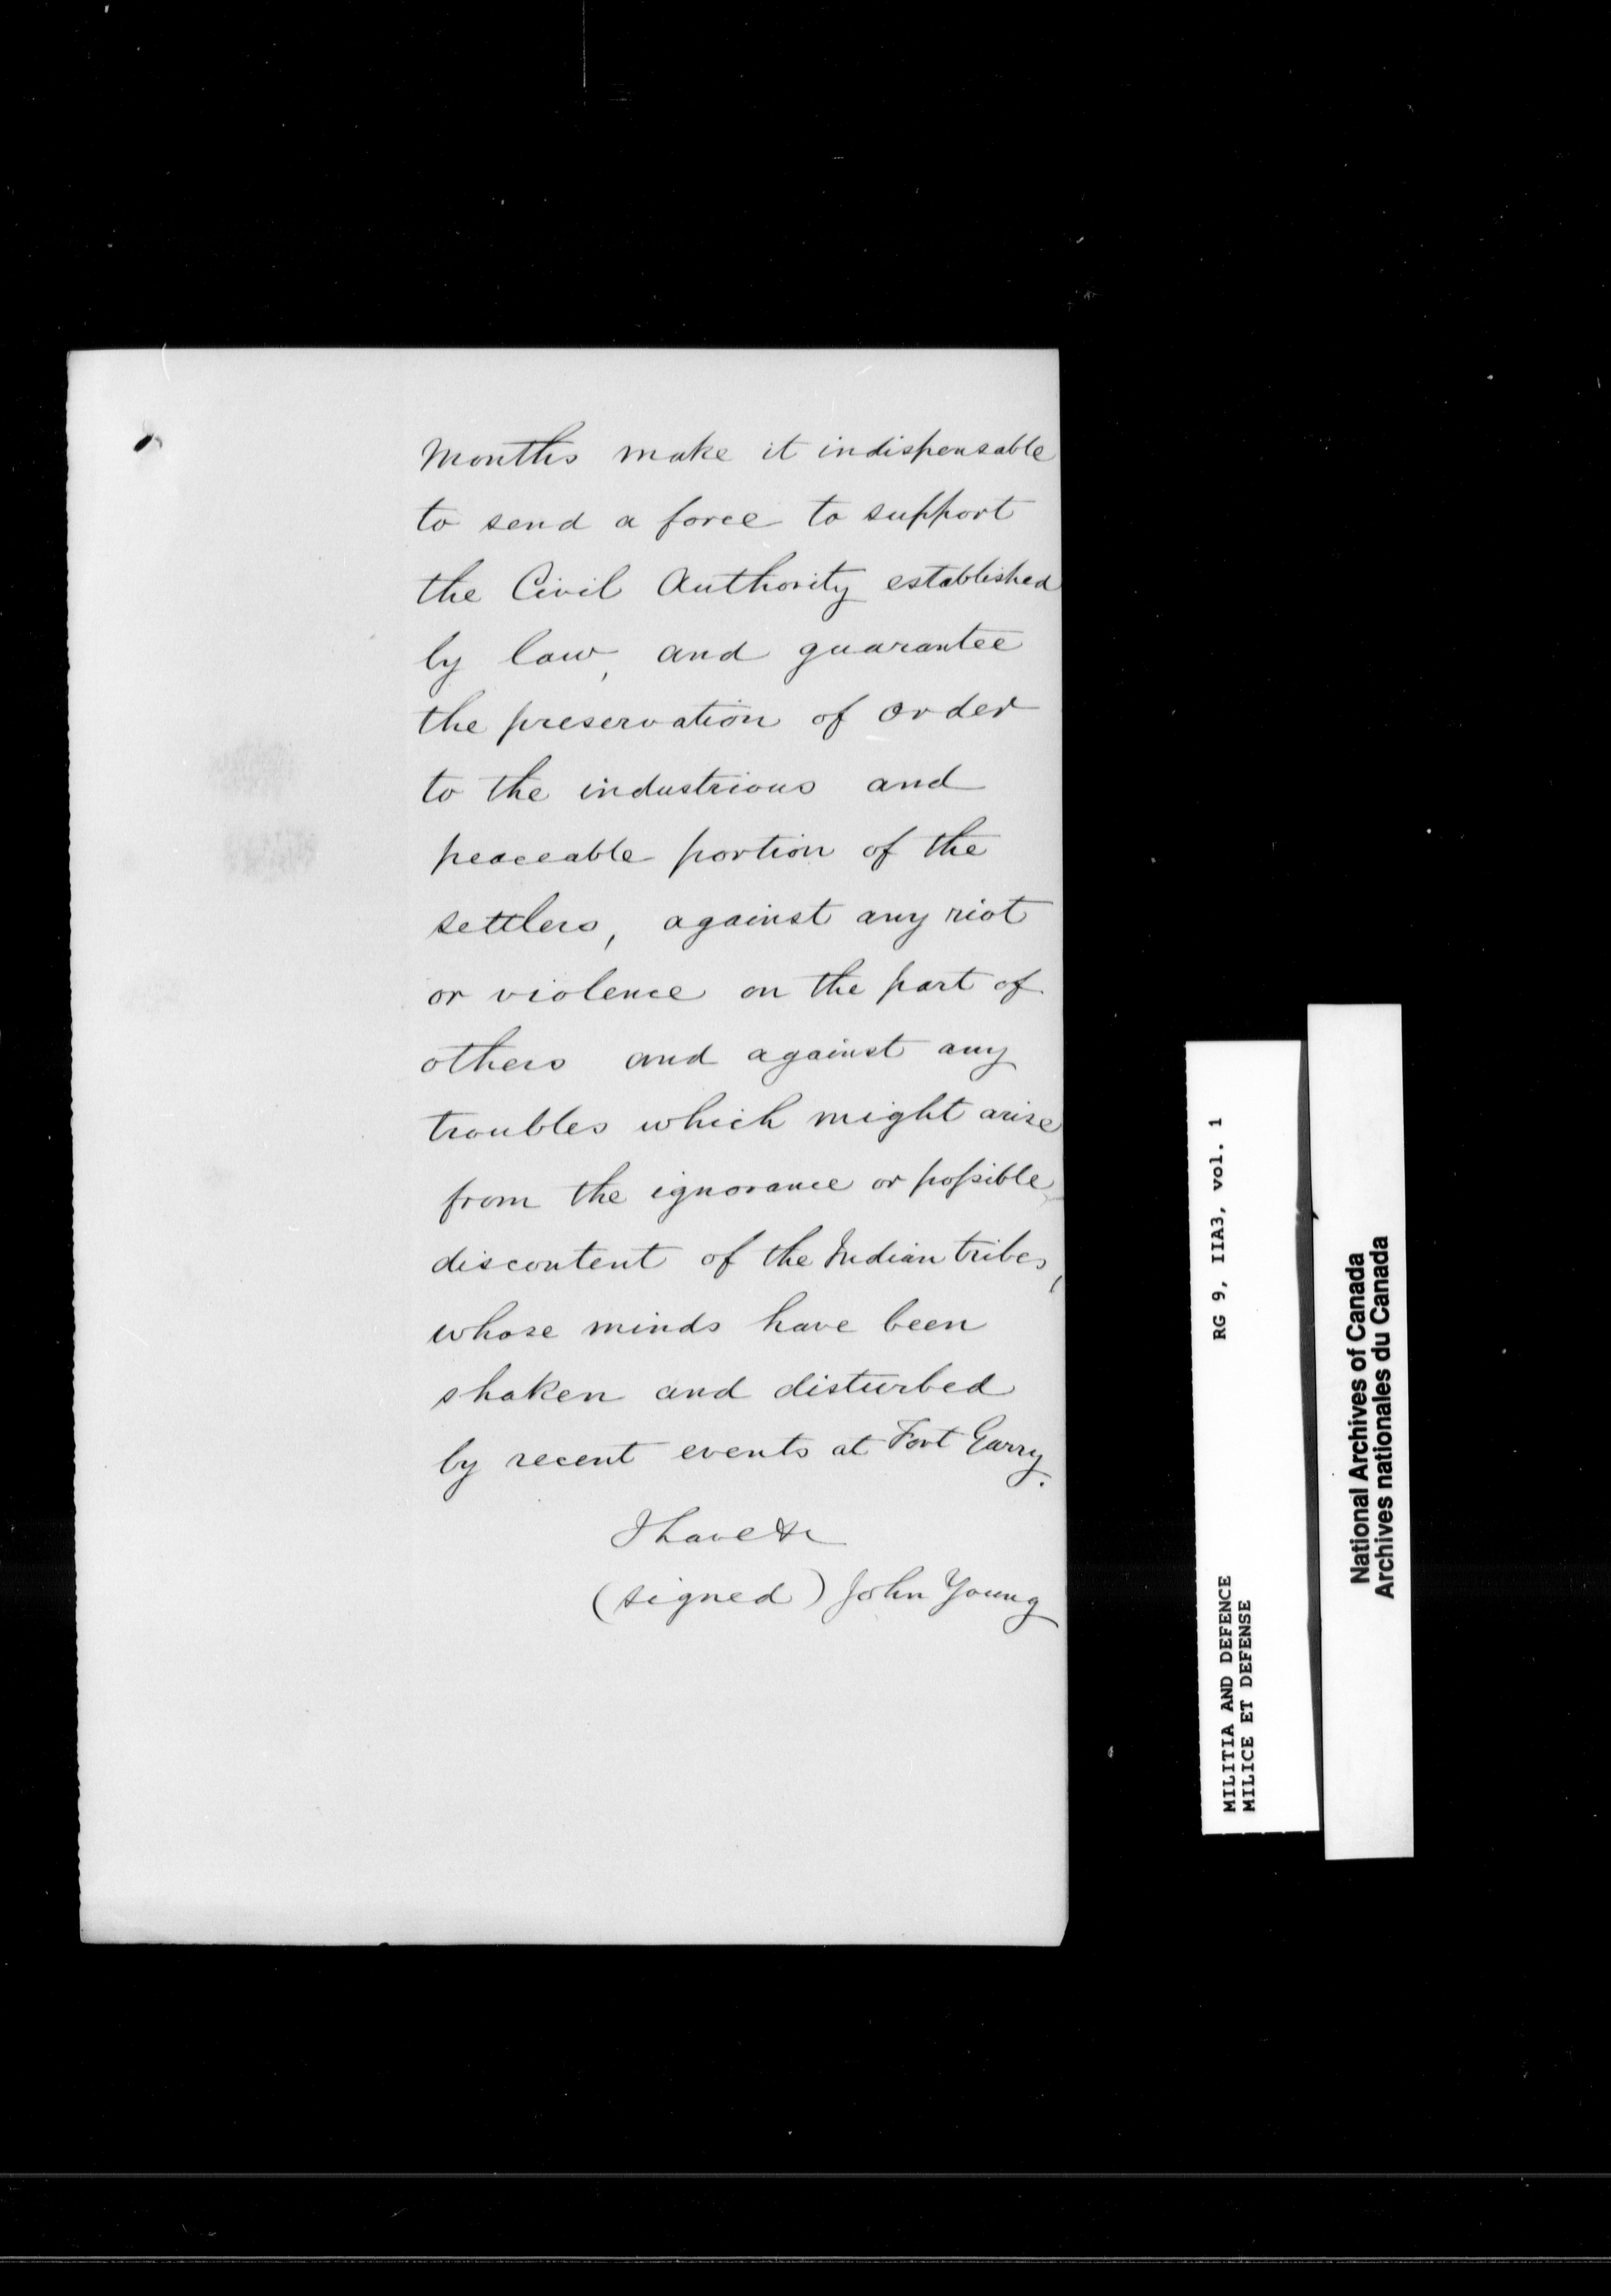 Months make it indispensable
to send a force to support
the Civil Authority established
by law, and guarantee
the preservation of order
to the industrious and
peaceable portion of the
settlers, against any riot
or violence on the part of
others and against any
troubles which might arise
from the ignorance or poſsible
discontent of the Indian tribes,
whose minds have been
shaken and disturbed
by recent events at Fort Garry.
I have &c
(signed) John Young
MILITIA AND DEFENCE RG 9, IIA3, vol. 1
MILICE ET DEFENSE
National Archives of Canada
Archives nationales du Canada